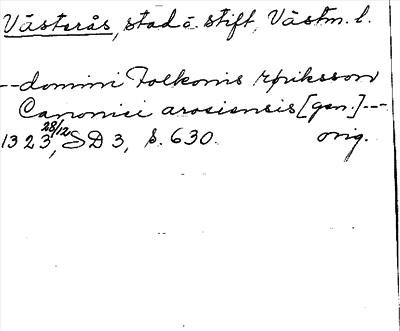 Västerås, stad o. stift, Västm. l.
--domini Folkonis xpriksson
Canonici arosiensis [gen.]---
1323 28/12, SD 3, s. 630. orig.